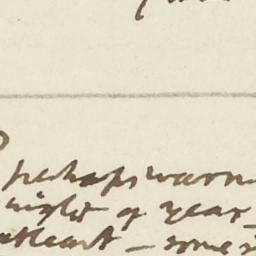 perhaps warm
night of year -
at least - some